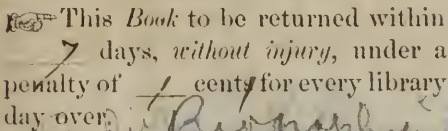 ☞ This Book to be returned within
7 days, without injury, under a
penalty of 1 cent for every library
day over.